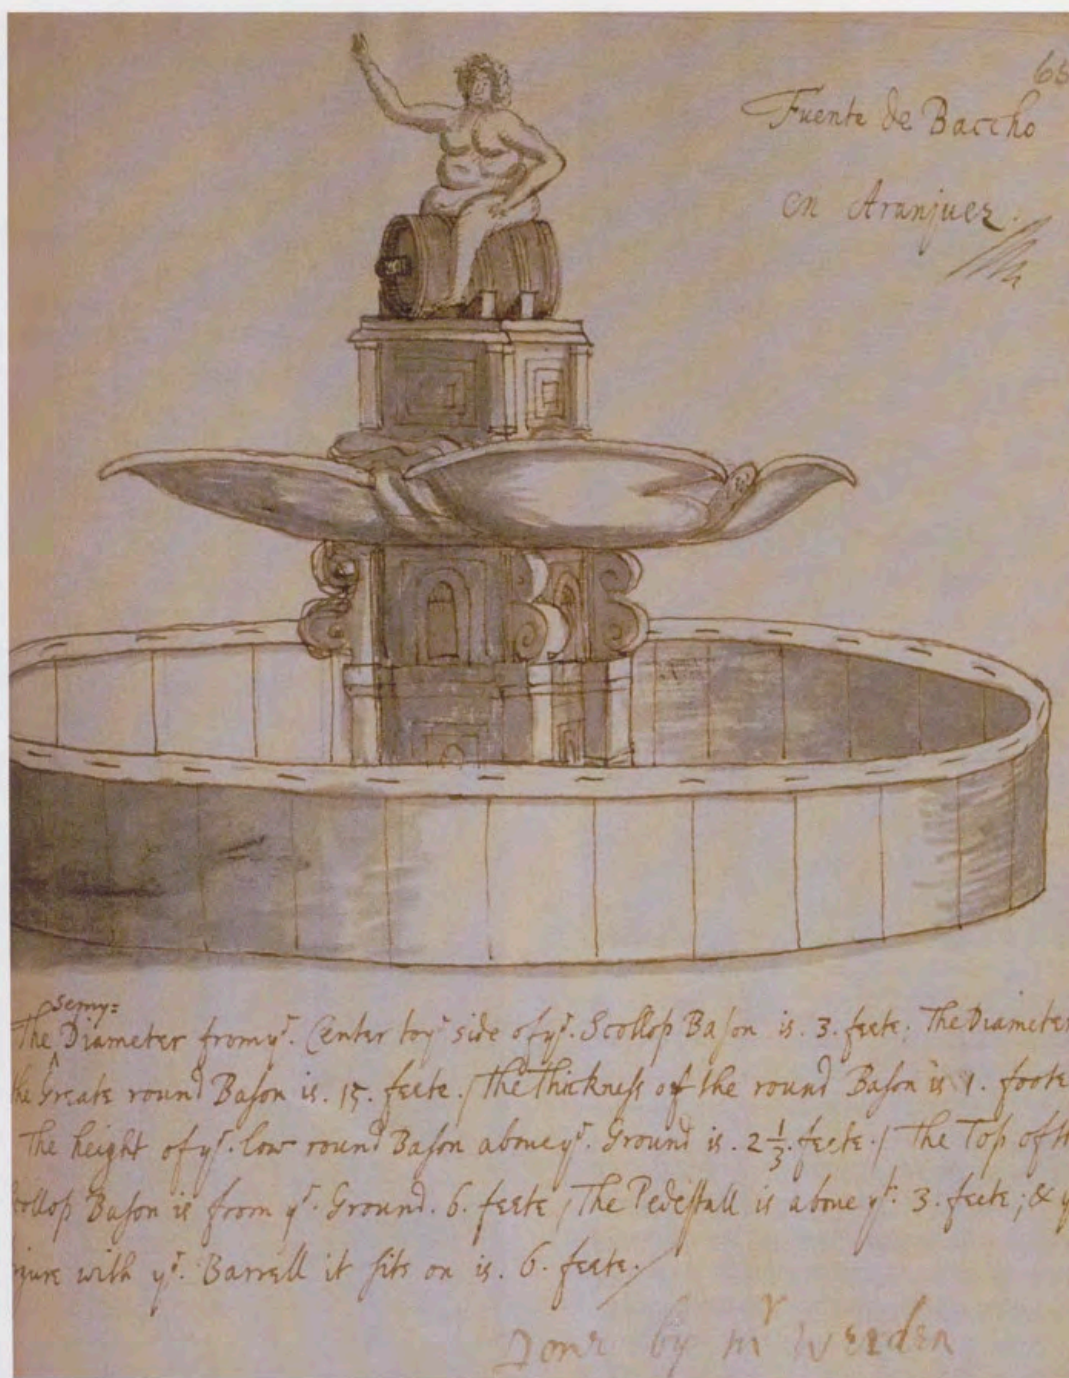 65
Fuente de Baccho
en Aranjuez.
semy=
The Diameter from yᵉ. Center to yᵉ side of yᵉ. Scollop Bason is. 3. feete; The Diameter
the Greate round Bason is. 15. feete./ The thickness of the round Bason is 1. foote
The height of yᵉ. low round Bason aboue yᵉ. Ground is. 2 1/3. feete./ The Top of th
collop Bason is from yᵉ. Ground. 6. feete / The Pedestall is aboue yᵗ. 3. feete; & y
igure with yᵉ. Barrell it sits on is. 6. feete./
Done by mʳ Werden